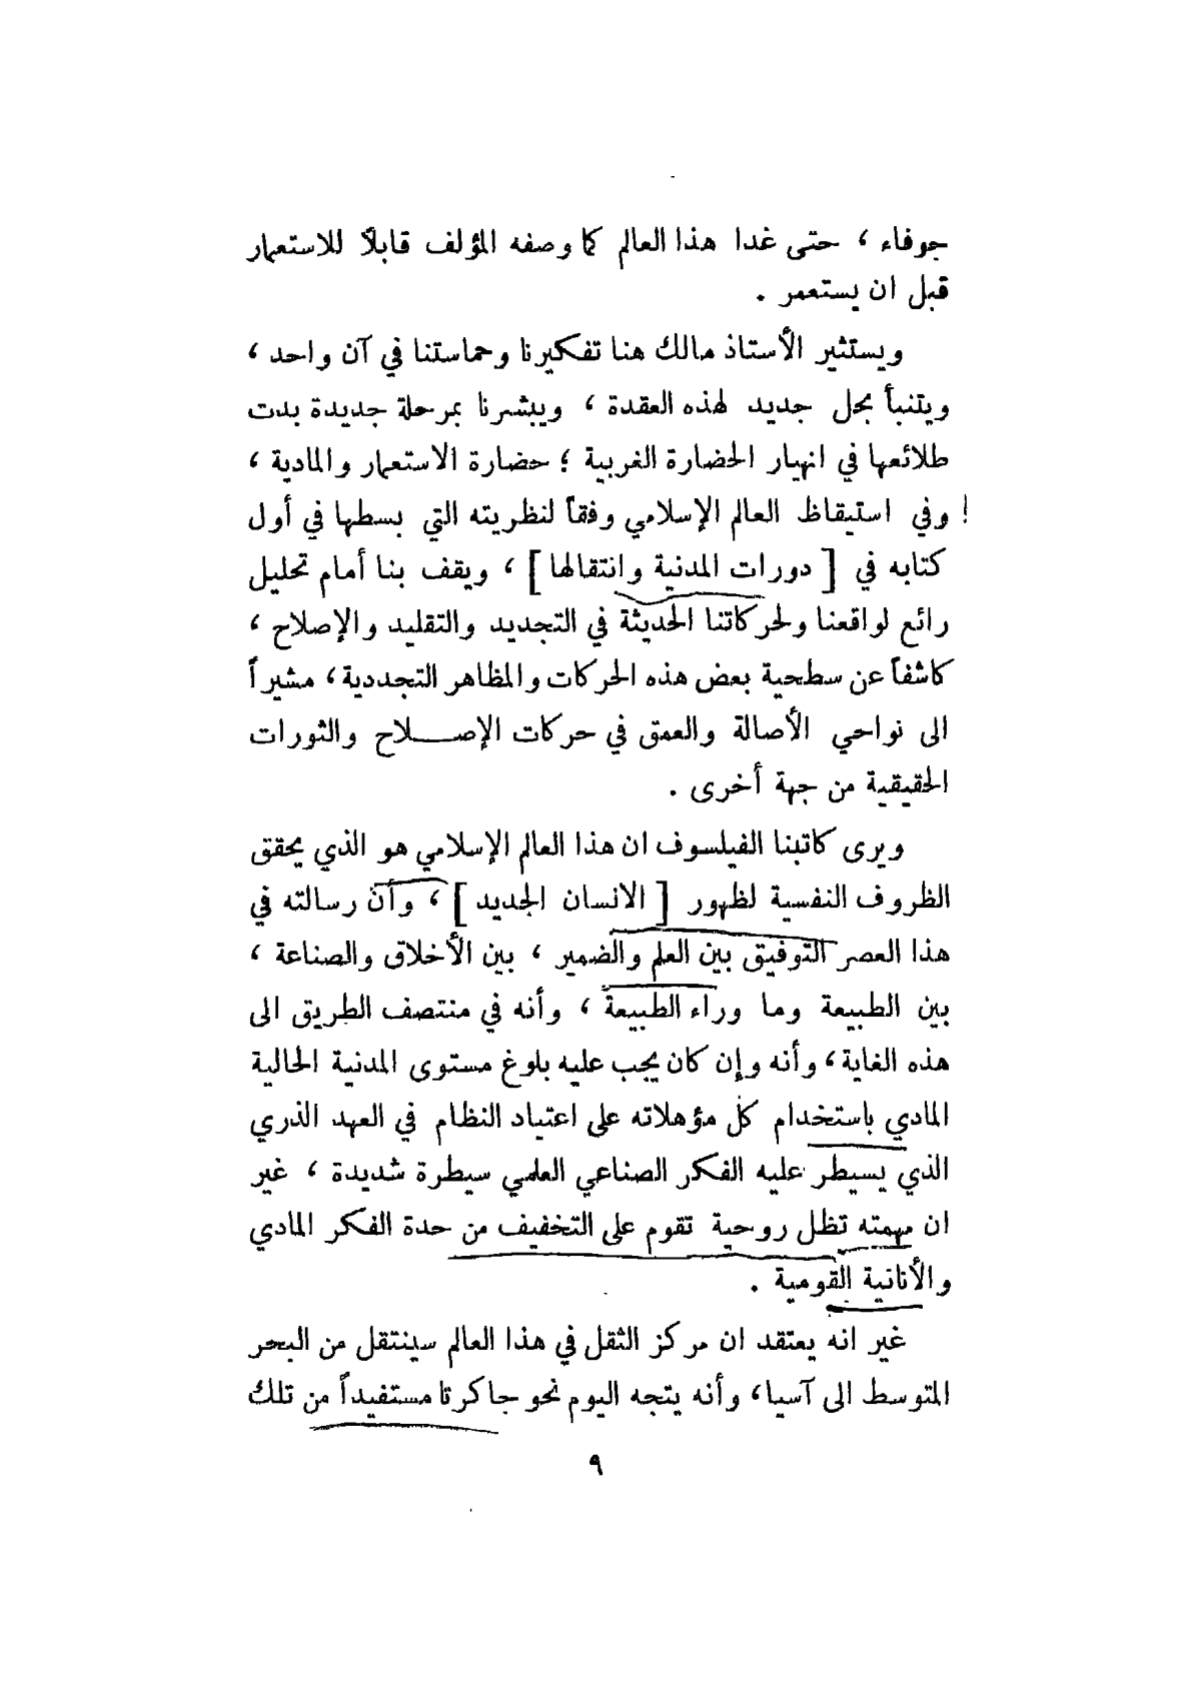 جوفاء ، حتى غدا هذا العالم كما وصفه المؤلف قابلاً للاستعمار
قبل ان يستعمر .
ويستثير الأستاذ مالك هنا تفكيرنا وحماستنا في آن واحد ،
ويتنبأ بحل جديد لهذه العقدة ، ويبشرنا بمرحلة جديدة بدت
طلائعها في انهيار الحضارة الغربية ؛ حضارة الاستعمار والمادية ،
وفي استيقاظ العالم الإسلامي وفقاً لنظريته التي بسطها في أول
كتابه في [ دورات المدنية وانتقالها ] ، ويقف بنا أمام تحليل
رائع لواقعنا ولحركاتنا الحديثة في التجديد والتقليد والإصلاح ،
كاشفاً عن سطحية بعض هذه الحركات والمظاهر التجددية ، مشيراً
الى نواحي الأصالة والعمق في حركات الإصـــلاح والثورات
الحقيقية من جهة أخرى .
ويرى كاتبنا الفيلسوف ان هذا العالم الإسلامي هو الذي يحقق
الظروف النفسية لظهور [ الانسان الجديد ] ، وأن رسالته في
هذا العصر التوفيق بين العلم والضمير ، بين الأخلاق والصناعة ،
بين الطبيعة وما وراء الطبيعة ، وأنه في منتصف الطريق الى
هذه الغاية ، وأنه وإن كان يجب عليه بلوغ مستوى المدنية الحالية
المادي باستخدام كل مؤهلاته على اعتياد النظام في العهد الذري
الذي يسيطر عليه الفكر الصناعي العلمي سيطرة شديدة ، غير
ان مهمته تظل روحية تقوم على التخفيف من حدة الفكر المادي
والأنانية القومية .
غير انه يعتقد ان مركز الثقل في هذا العالم سينتقل من البحر
المتوسط الى آسيا ، وأنه يتجه اليوم نحو جاكرتا مستفيداً من تلك
٩